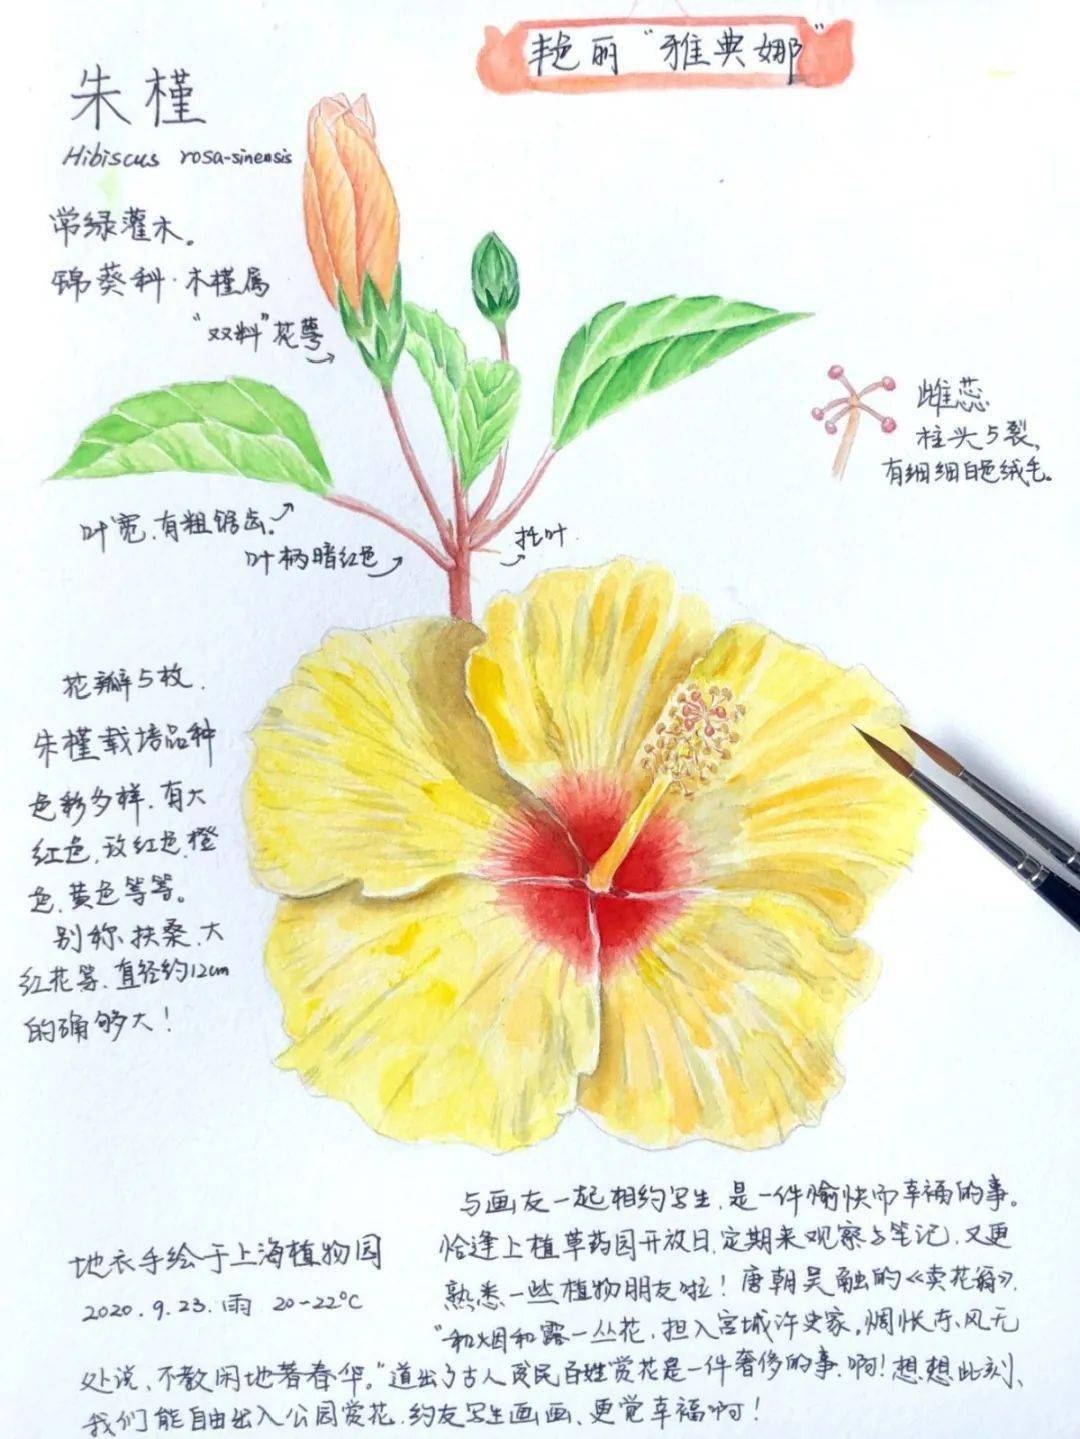 艳丽“雅典娜”
朱槿
Hibiscus rosa-sinensis
常绿灌木。
锦葵科·木槿属
“双料”花萼
雌蕊
柱头5裂,
有细细白色绒毛。
叶宽,有粗锯齿。
叶柄暗红色
托叶
花瓣5枚,
朱槿栽培品种
色彩多样,有大
红色,玫红色,橙
色,黄色等等。
别称、扶桑、大
红花等,直径约12cm
的确够大!
地衣手绘于上海植物园
2020.9.23.雨 20-22℃
与画友一起相约写生,是一件愉快而幸福的事。
恰逢上植草药园开放日,定期来观察与笔记,又更
熟悉一些植物朋友啦!唐朝吴融的《卖花翁》,
“和烟和露一丛花,担入宫城许史家,惆怅东风无
处说,不教闲地著春华。”道出了古人贫民百姓赏花是一件奢侈的事,啊!想想此刻、
我们能自由出入公园赏花,约友写生画画、更觉幸福啊!